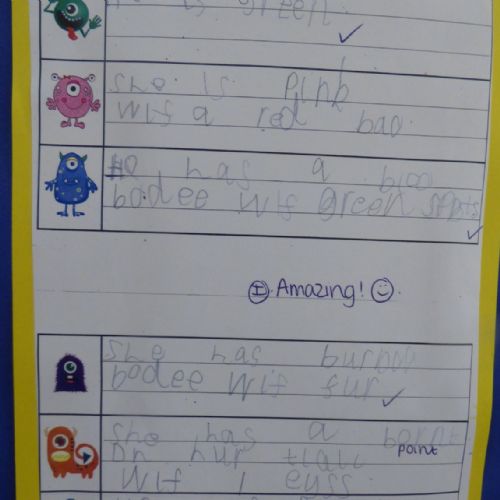 is green
she is pink
wif a red bao
He has a bloo
bodee wif green spots
I Amazing!
she has burnow
bodee wif fur
she has a
point
on hur
wif 1 euss